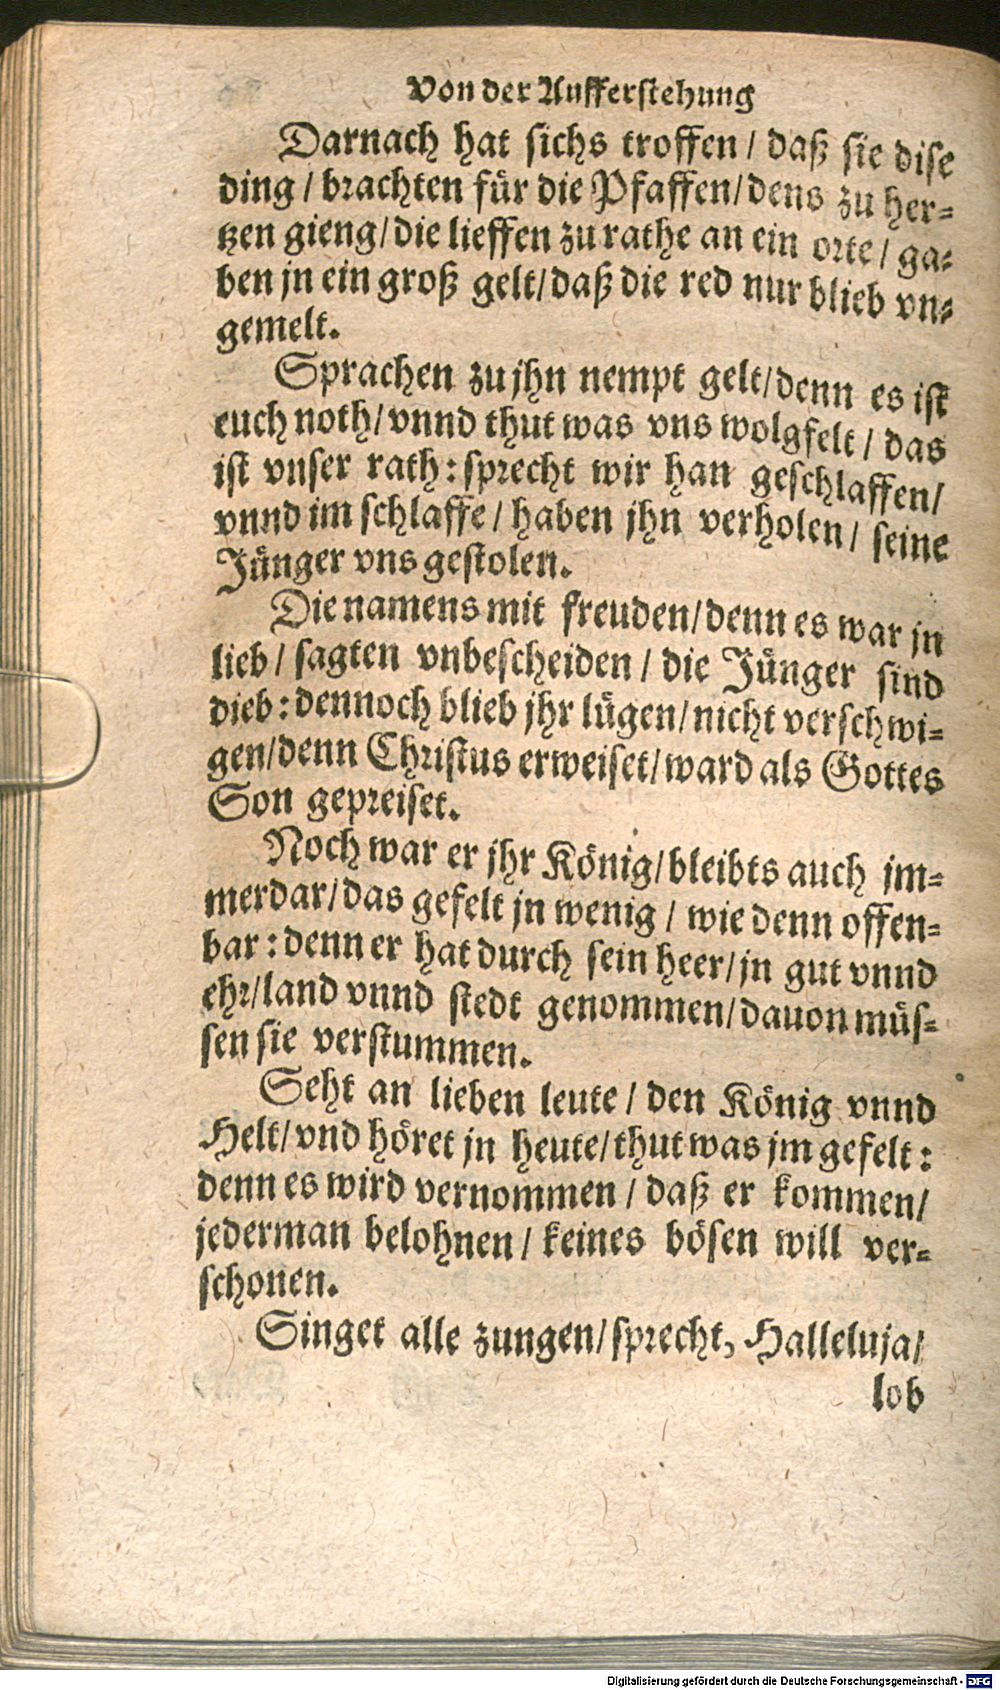 Von der Aufferstehung
Darnach hat sichs troffen / daß sie dise
ding / brachten für die Pfaffen / dens zu her=
tzen gieng / die lieffen zu rathe an ein orte / ga=
ben jn ein groß gelt / daß die red nur blieb vn=
gemelt.
Sprachen zu jhn nempt gelt / denn es ist
euch noth / vnnd thut was vns wolgfelt / das
ist vnser rath : sprecht wir han geschlaffen /
vnnd im schlaffe / haben jhn verholen / seine
Jünger vns gestolen.
Die namens mit freuden / denn es war jn
lieb / sagten vnbescheiden / die Jünger sind
dieb : dennoch blieb jhr lügen / nicht verschwi=
gen / denn Christus erweiset / ward als Gottes
Son gepreiset.
Noch war er jhr König / bleibts auch jm=
merdar / das gefelt jn wenig / wie denn offen=
bar : denn er hat durch sein heer / jn gut vnnd
ehr / land vnnd stedt genommen / dauon müs=
sen sie verstummen.
Seht an lieben leute / den König vnnd
Helt / vnd höret jn heute / thut was jm gefelt :
denn es wird vernommen / daß er kommen /
jederman belohnen / keines bösen will ver=
schonen.
Singet alle zungen / sprecht, Halleluja /
lob
Digitalisierung gefördert durch die Deutsche Forschungsgemeinschaft - DFG